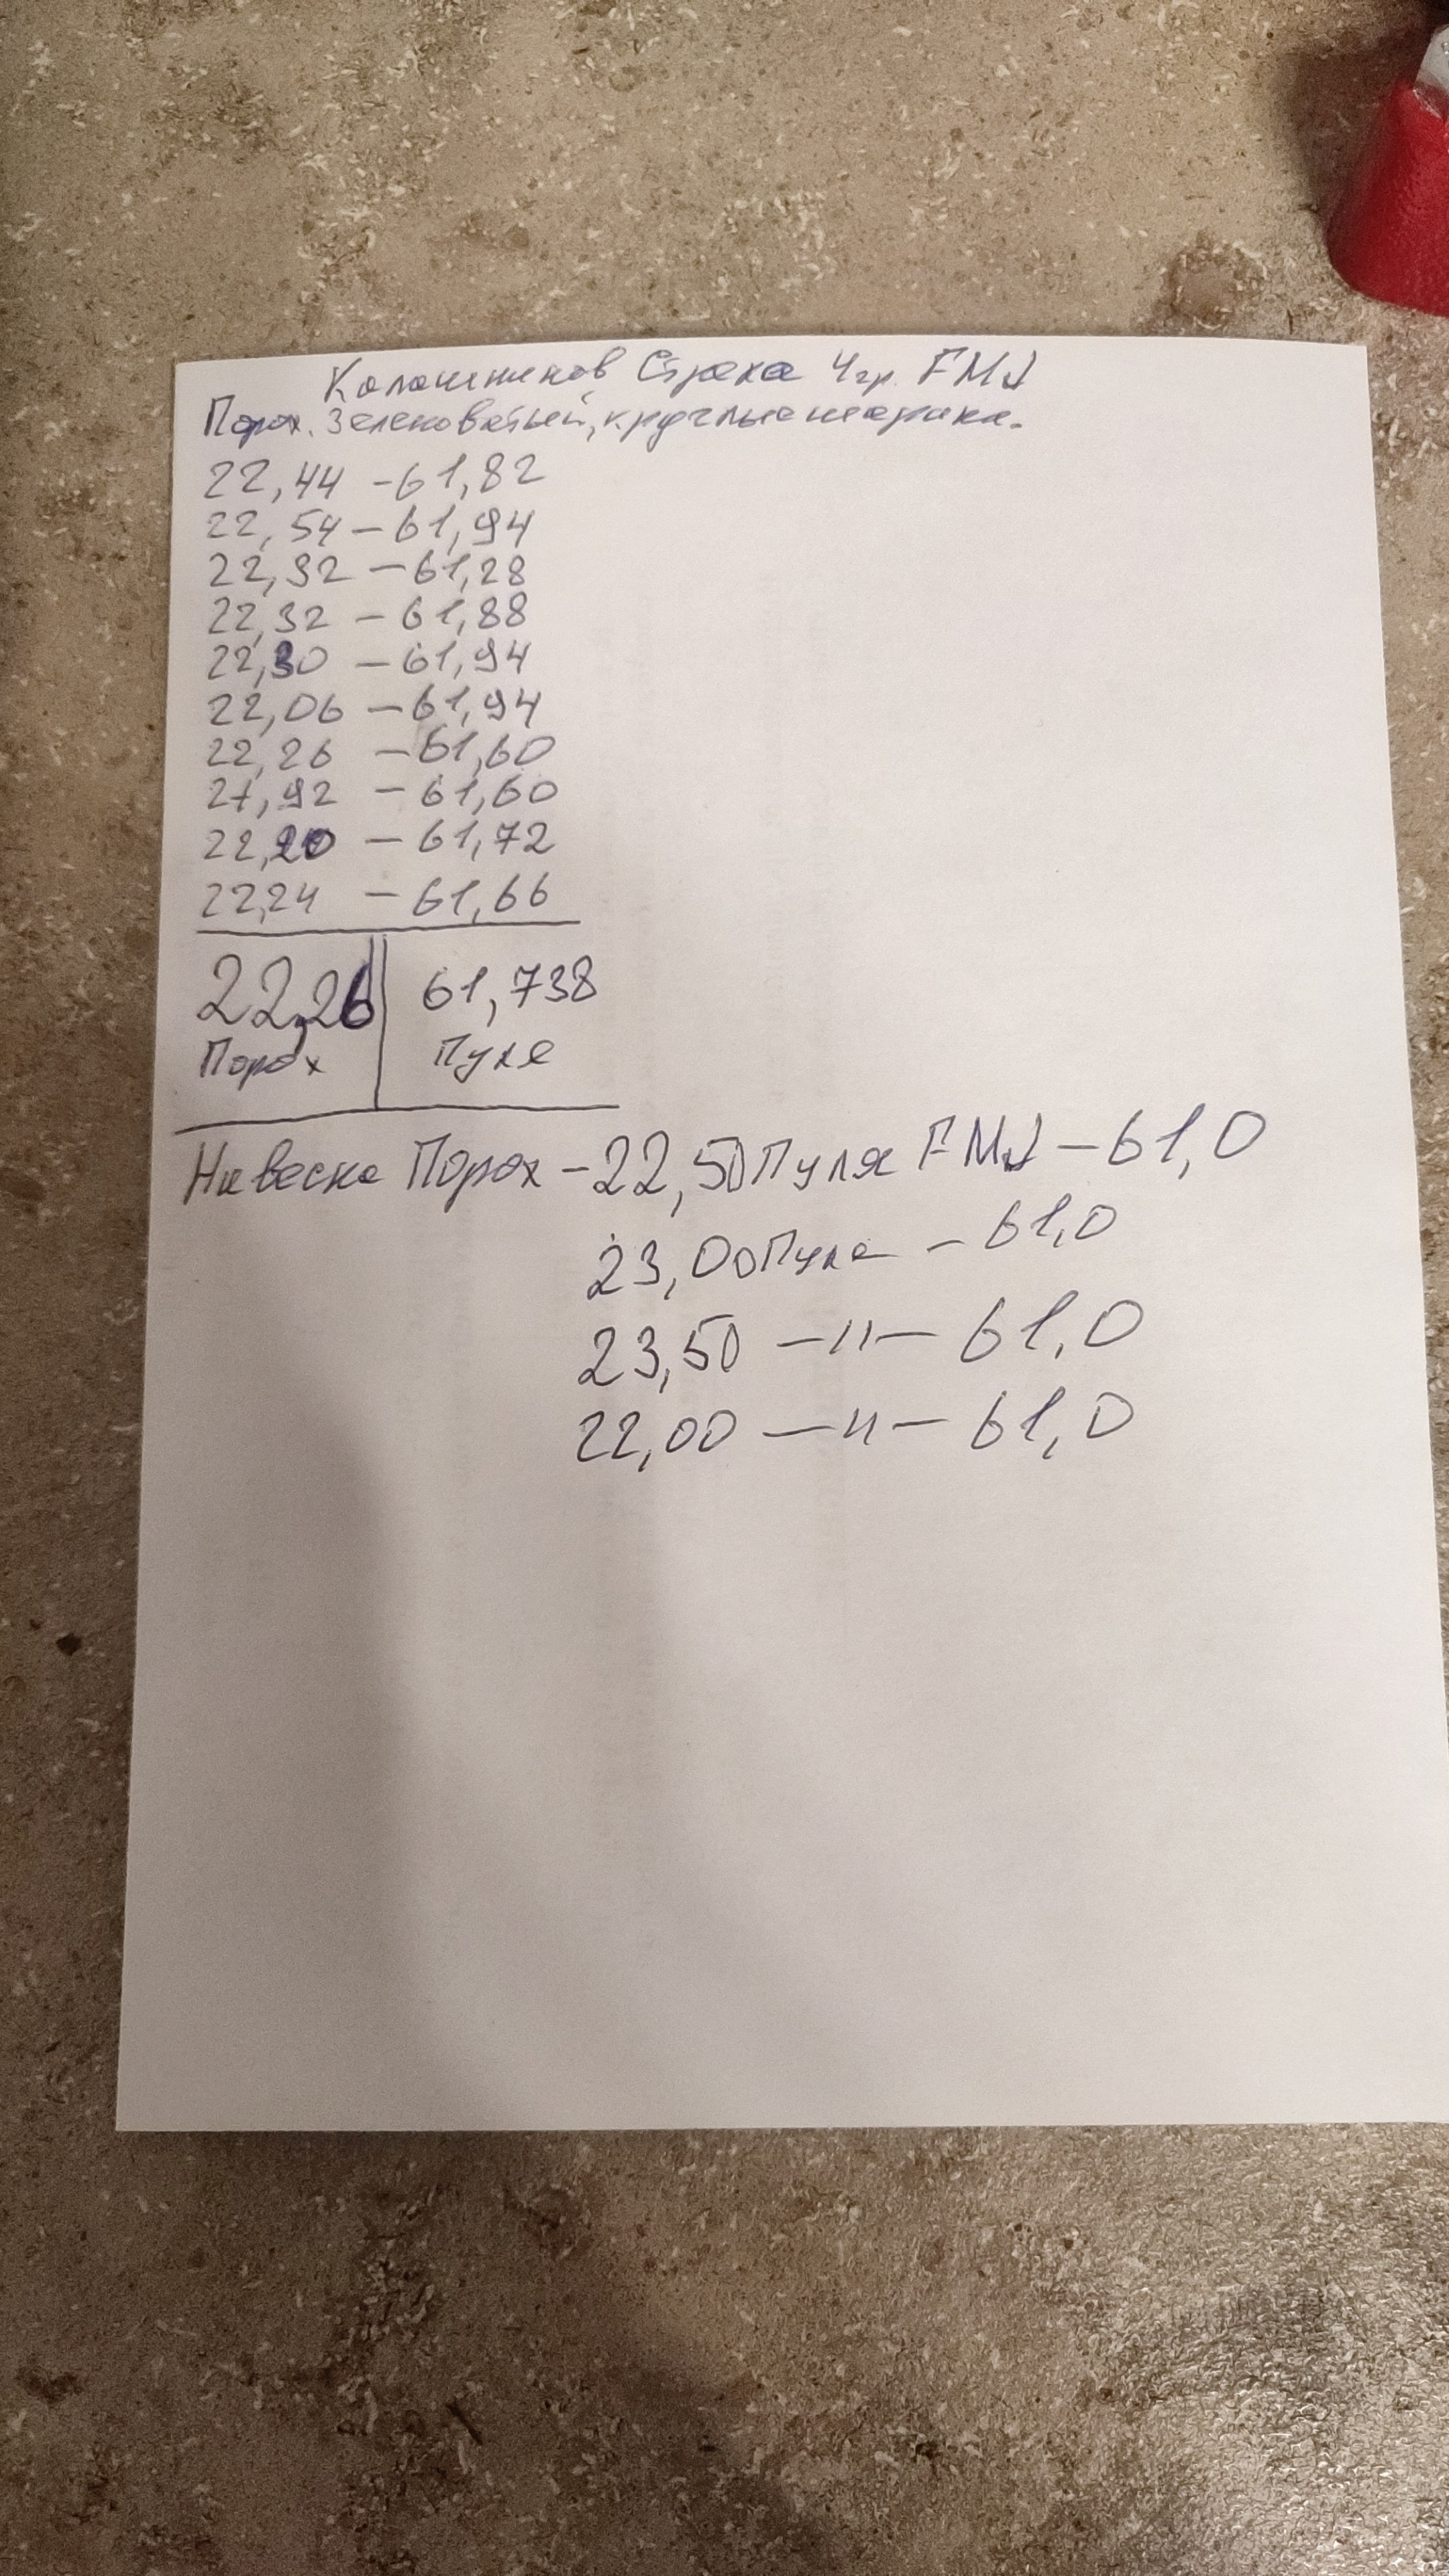 Калашников Страха 4гр. FMJ
Порох. Зеленоватый, круглые шарики.
22,44 - 61,82
22,54 - 61,94
22,32 - 61,28
22,32 - 61,88
22,30 - 61,94
22,06 - 61,94
22,26 - 61,60
21,92 - 61,60
22,20 - 61,72
22,24 - 61,66
22,26 61,738
Порох Пуля
Навеска Порох - 22,50 Пуля FMJ - 61,0
23,00 Пуля - 61,0
23,50 -"- 61,0
22,00 -"- 61,0